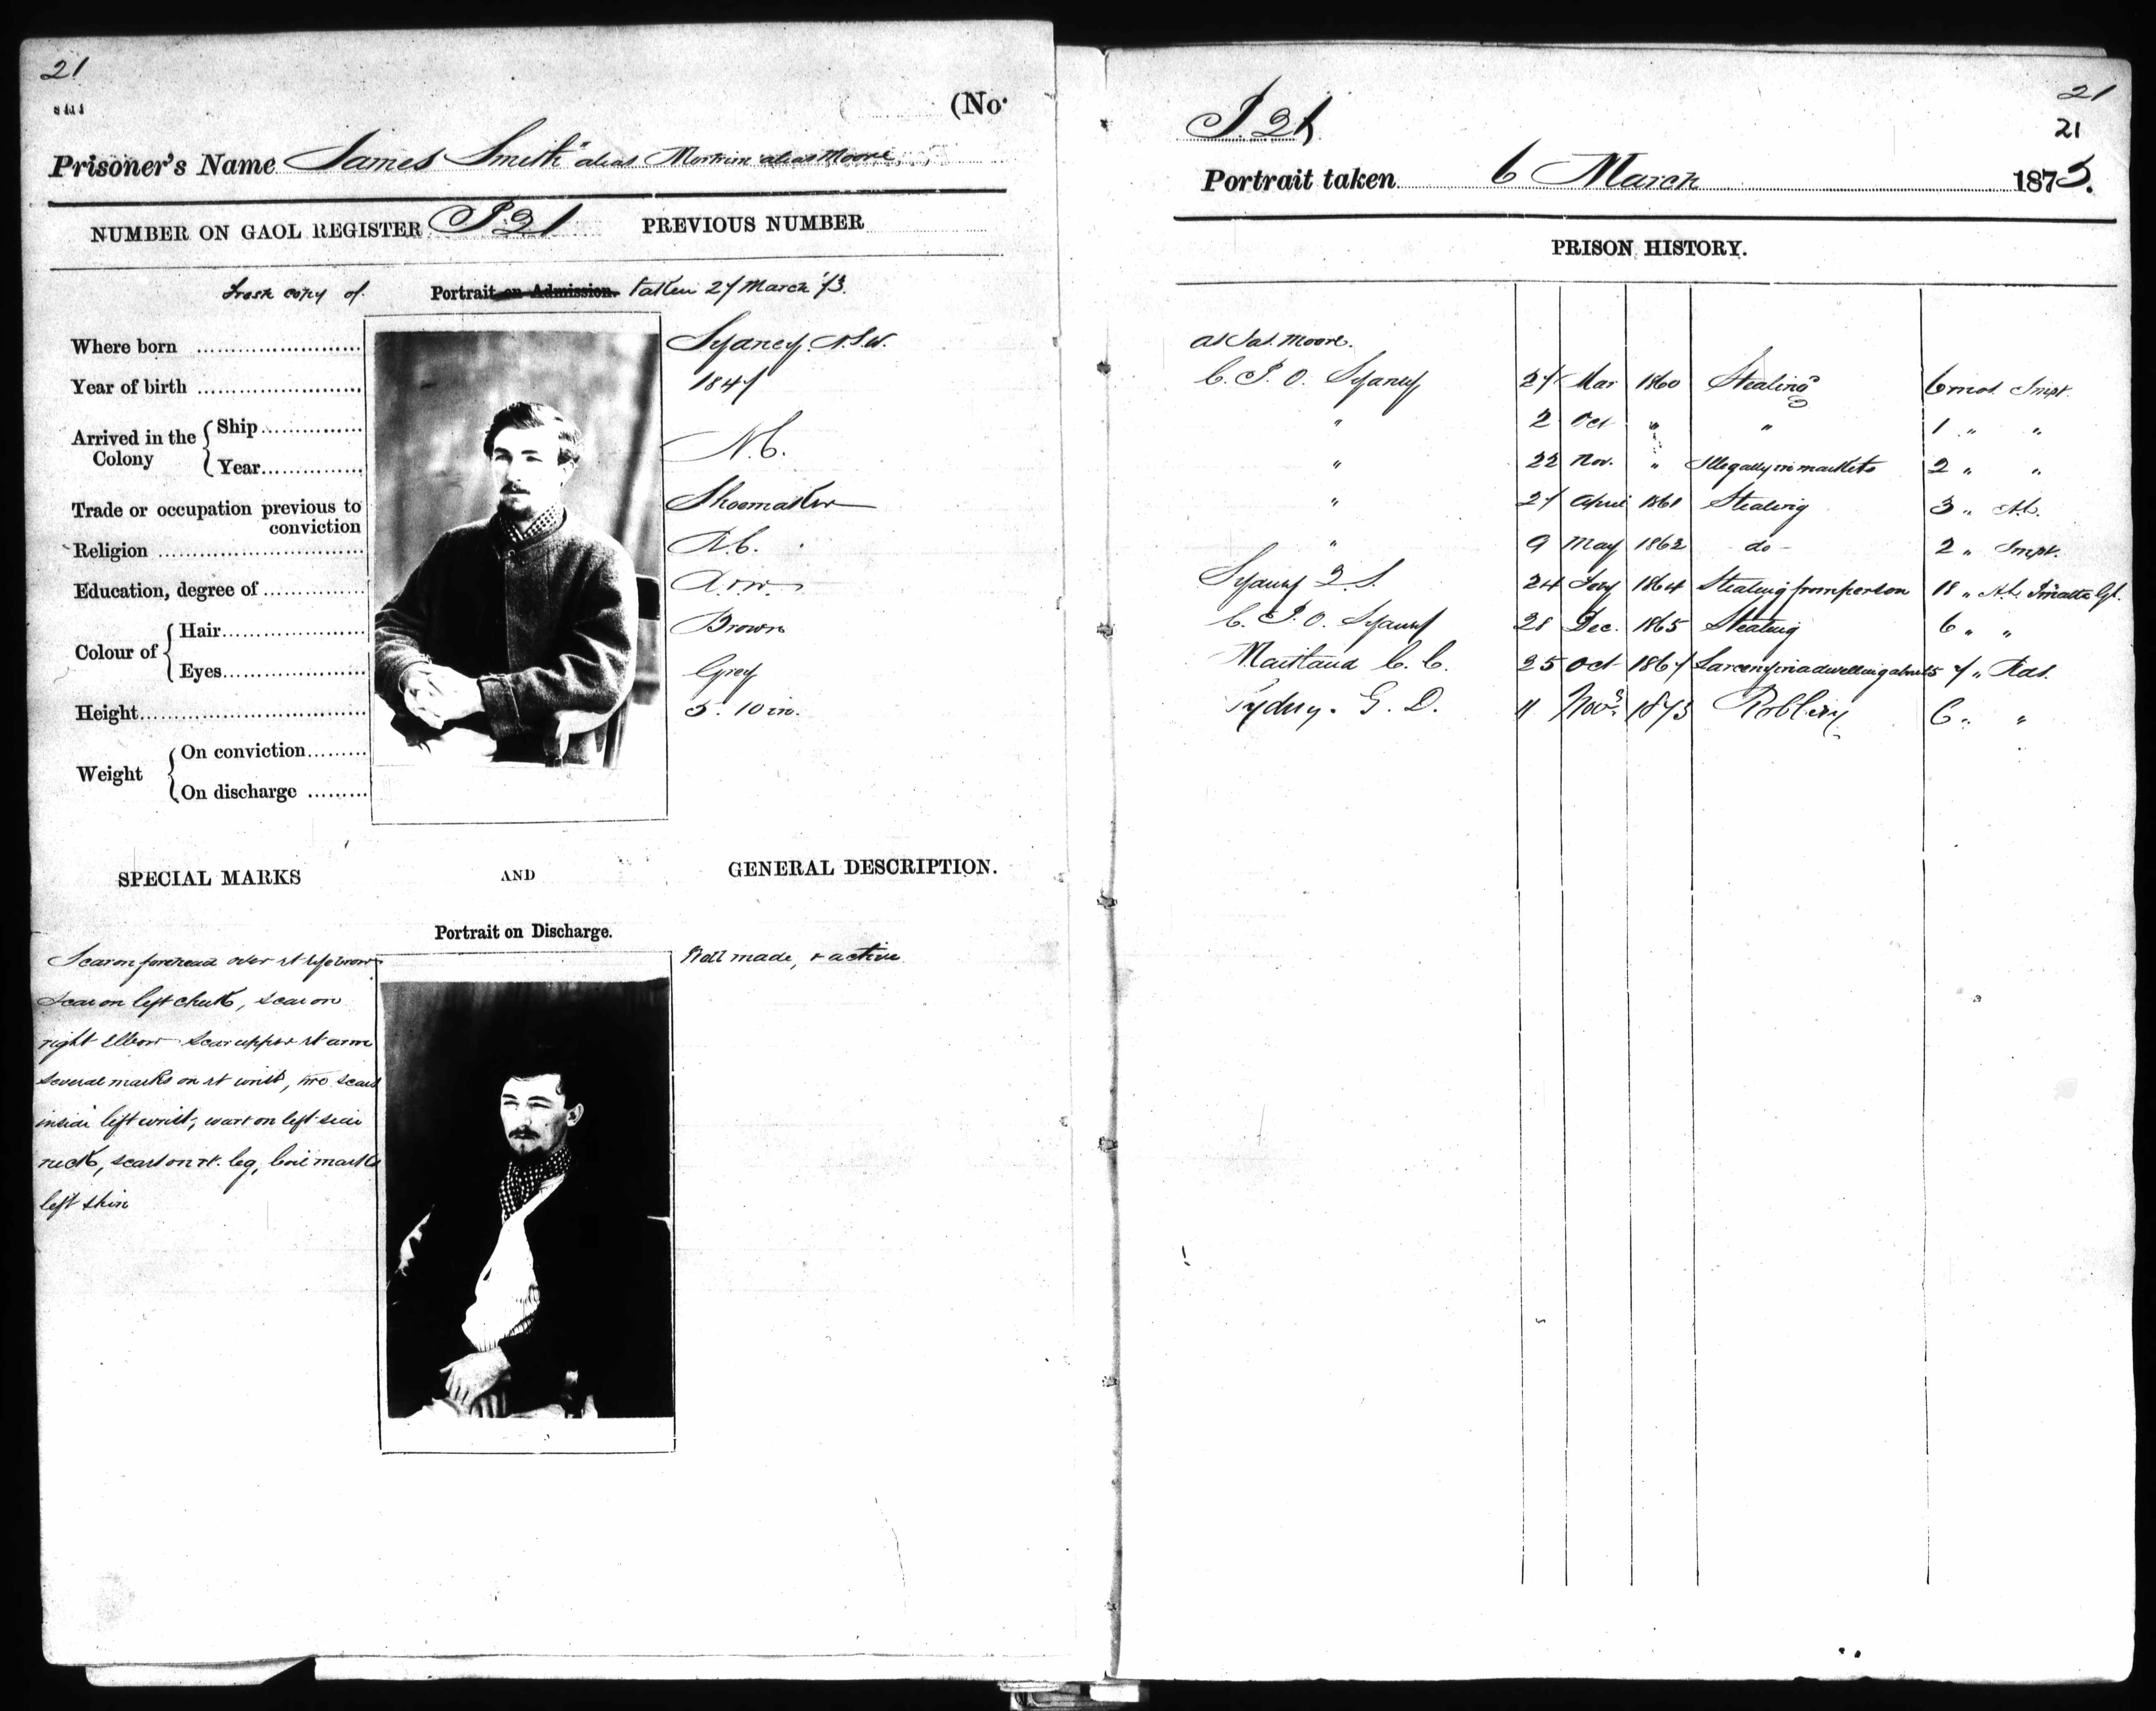 21
(No.
Prisoner's Name James Smith "alias Morkim" alias Moore
NUMBER ON GAOL REGISTER P.21 PREVIOUS NUMBER
Fresh copy of Portrait on Admission. taken 27 March '73.
Where born Sydney. N.S.W.
Year of birth 1847
Arrived in the Colony { Ship
Year N.C.
Trade or occupation previous to conviction Shoemaker
Religion R.C.
Education, degree of R.&W.
Colour of { Hair Brown
Eyes Grey
Height 5. 10 in.
Weight { On conviction
On discharge
SPECIAL MARKS AND GENERAL DESCRIPTION.
Portrait on Discharge.
Scar on forehead over rt eyebrow
scar on left cheek, scar on
right elbow scar upper rt arm
several marks on rt wrist, two scars
inside left wrist, wart on left side
neck, scars on rt. leg, boil marks
left shin
Well made, & active
P.21
21
21
Portrait taken 6 March 1873.
PRISON HISTORY.
as Jas. Moore.
C. P. O. Sydney 27 Mar 1860 Stealing 6 mos. Impt.
" 2 Oct " " 1 " "
" 22 Nov. " Illegally in markets 2 " "
" 27 April 1861 Stealing 3 " H.L.
" 9 May 1862 do 2 " Impt.
Sydney Q. S. 24 1864 Stealing from person 18 " H.L. P'matta Gl.
C. P. O. Sydney 28 Dec. 1865 Stealing 6 " "
Maitland C. C. 25 Oct 1867 Larceny in a dwelling above £5 7 " Rds.
Sydney. G. D. 11 Nov. 1873 Robbery 6 " "